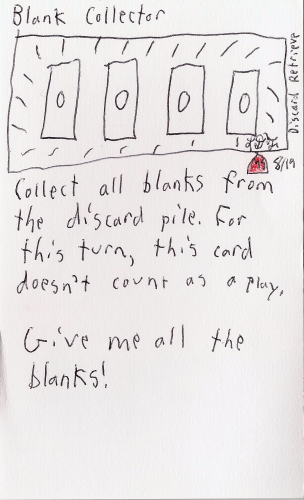 Blank Collector
Discard Retrieve
0 0 0 0
8/19
Collect all blanks from
the discard pile. For
this turn, this card
doesn't count as a play.
Give me all the
blanks!